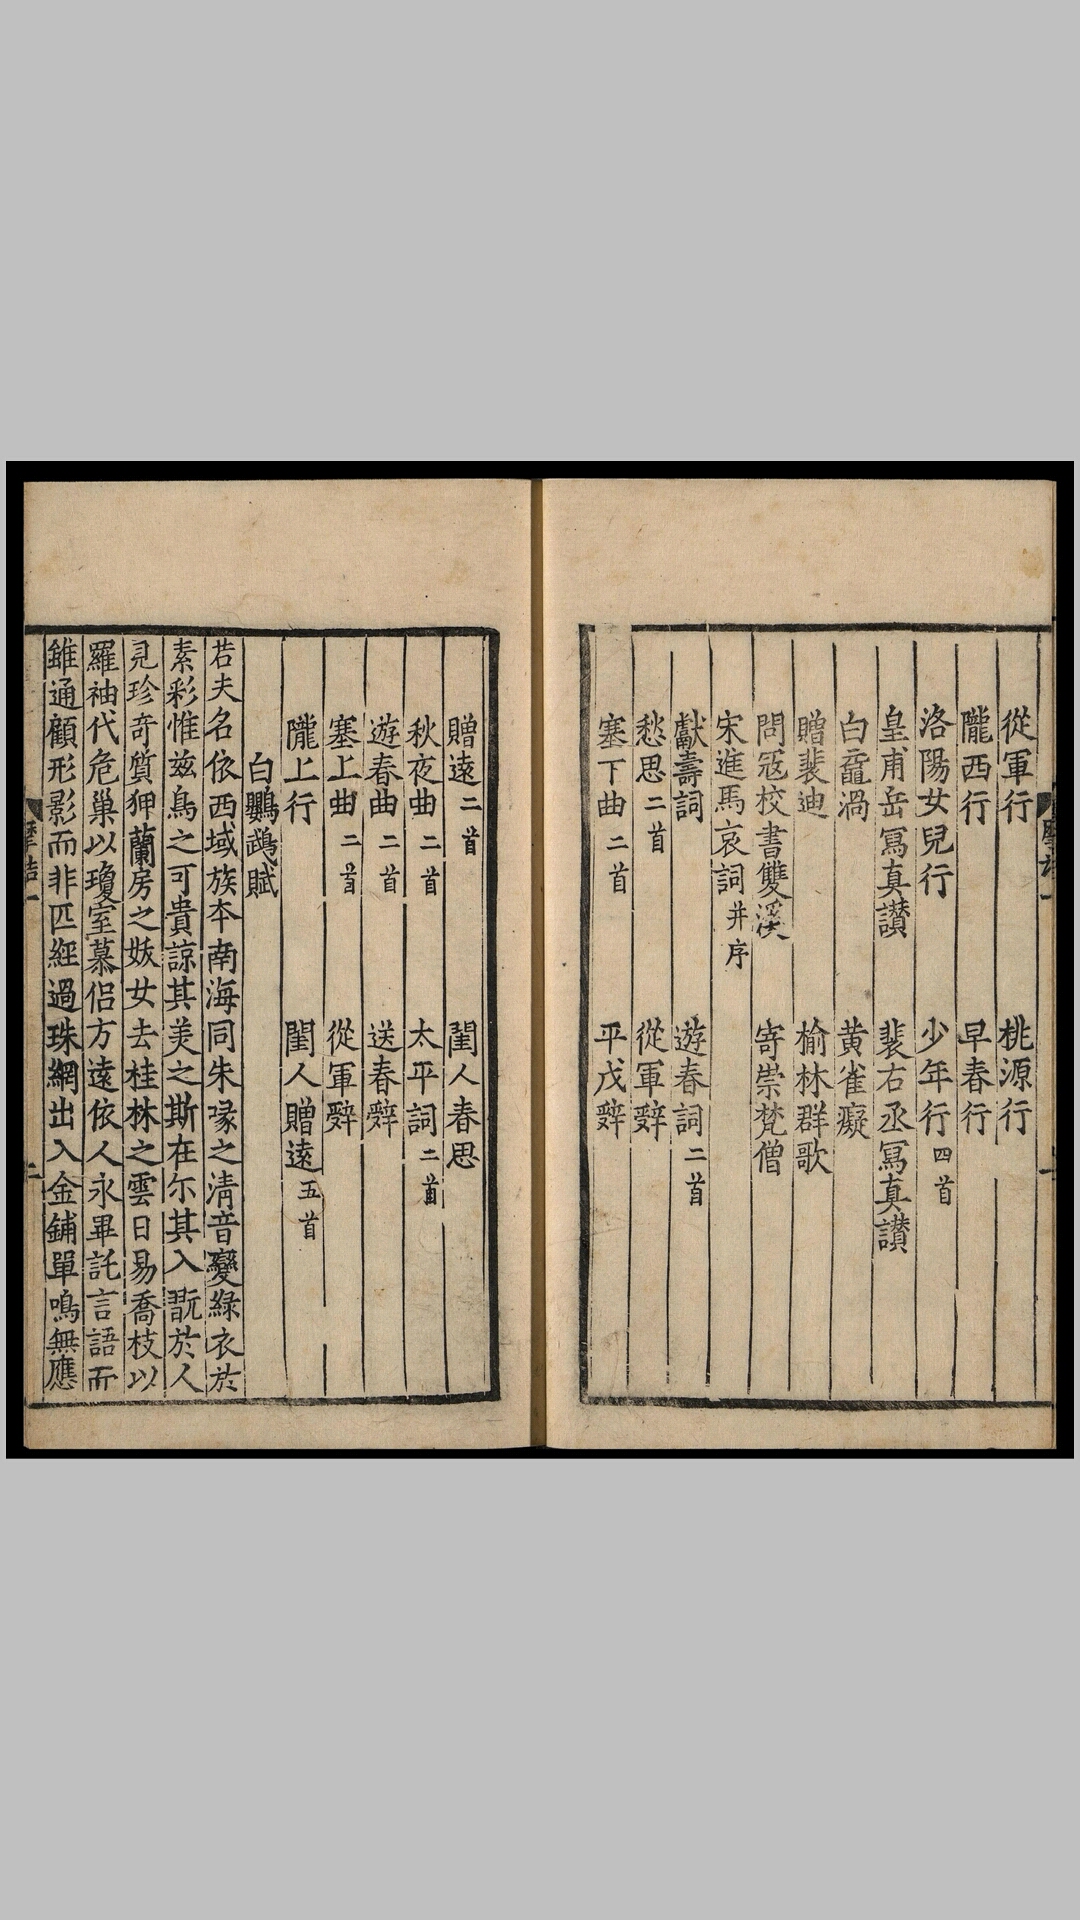 從軍行　桃源行
隴西行　早春行
洛陽女兒行　少年行四首
皇甫岳冩真讃　裴右丞冩真讃
白黿渦　黄雀癡
贈裴迪　榆林群歌
問寇校書雙溪　寄崇梵僧
宋進馬哀詞并序
獻壽詞　遊春詞二首
愁思二首　從軍辤
塞下曲二首　平戎辤
贈遠二首　閨人春思
秋夜曲二首　太平詞二首
遊春曲二首　送春辤
塞上曲二首　從軍辤
隴上行　閨人贈遠五首
白鸚鵡賦
若夫名依西域族本南海同朱喙之清音變綠衣於
素彩惟兹鳥之可貴諒其美之斯在尓其入翫於人
見珍竒質狎蘭房之妖女去桂林之雲日易喬枝以
羅袖代危巢以瓊室慕侣方遠依人永畢託言語而
雖通顧形影而非匹經過珠網出入金鋪單鳴無應